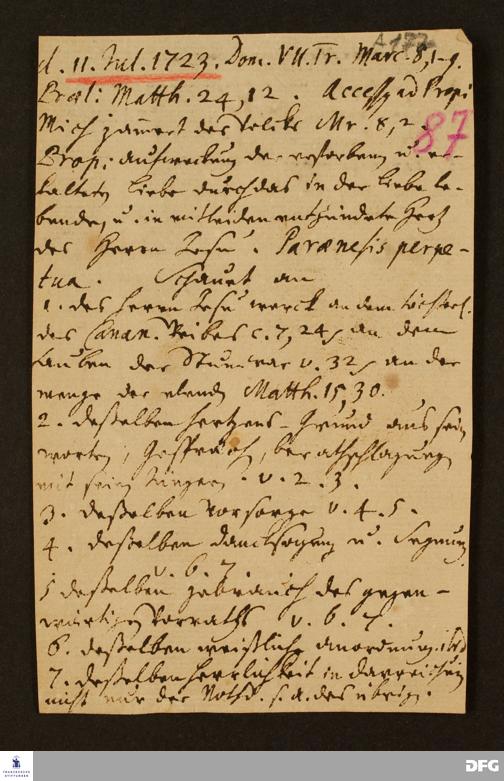 A 177
d. 11. Jul. 1723. Dom. VII. Tr. Marc. 8, 1-9.
Exord: Matth. 24, 12. Access, ad Propi
Mich jamert des Volks Mr. 8, 2.
87
Prop: aufweckung der erstorbenen u. er-
kalteten Liebe durch das in der Liebe le-
bende, u. in mitleiden entzündete Hertz
des Herrn Jesu. Paraenesis perpe-
tua. Schauet an
1. des Herrn Jesu werck an dem
des Canan. Weibes c. 7, 24 an dem
Tauben der Stum war v. 32 an der
menge der elend Matth. 15, 30.
2. desselben Hertzens-Grund aus sein
worten, Gespräch, berathschlagung
mit sein Jüngern. v. 2. 3.
3. desselben Vorsorge v. 4. 5.
4. desselben dancksagung u. Segnung
v. 6. 7
5 desselben gebrauch des gegen-
wärtigen Vorraths v. 6. 7.
6. desselben weißliche anordnung. ibid
7. desselben Herrlichkeit in darreichung
nicht nur der Nothd. s. a. des übrig.
FRANCKESCHE STIFTUNGEN
DFG